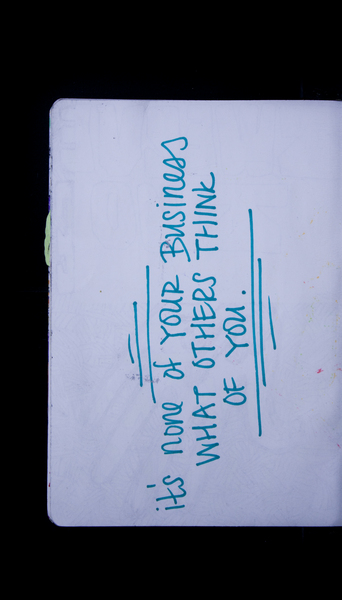 it's none of YOUR Business
WHAT OTHERS THINK
OF YOU.